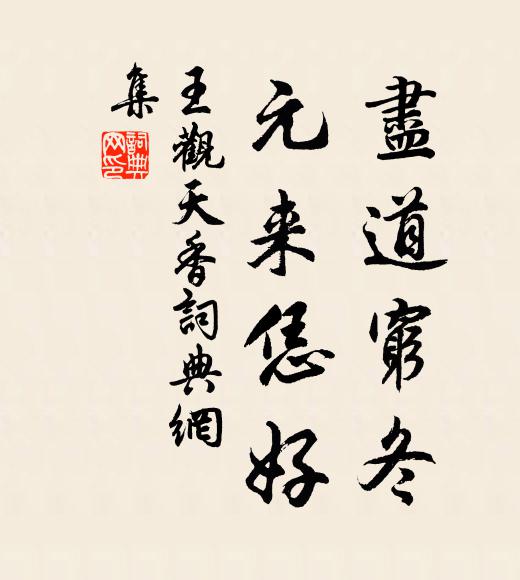 盡道窮冬
元来恁好
王觀天香詞典網
集
詞典网印